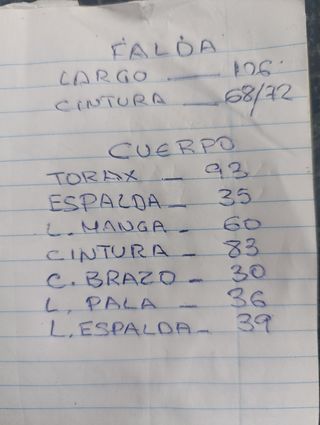 FALDA
LARGO — 106
CINTURA — 68/72
CUERPO
TORAX — 93
ESPALDA — 35
L. MANGA — 60
CINTURA — 83
C. BRAZO — 30
L. PALA — 36
L. ESPALDA — 39